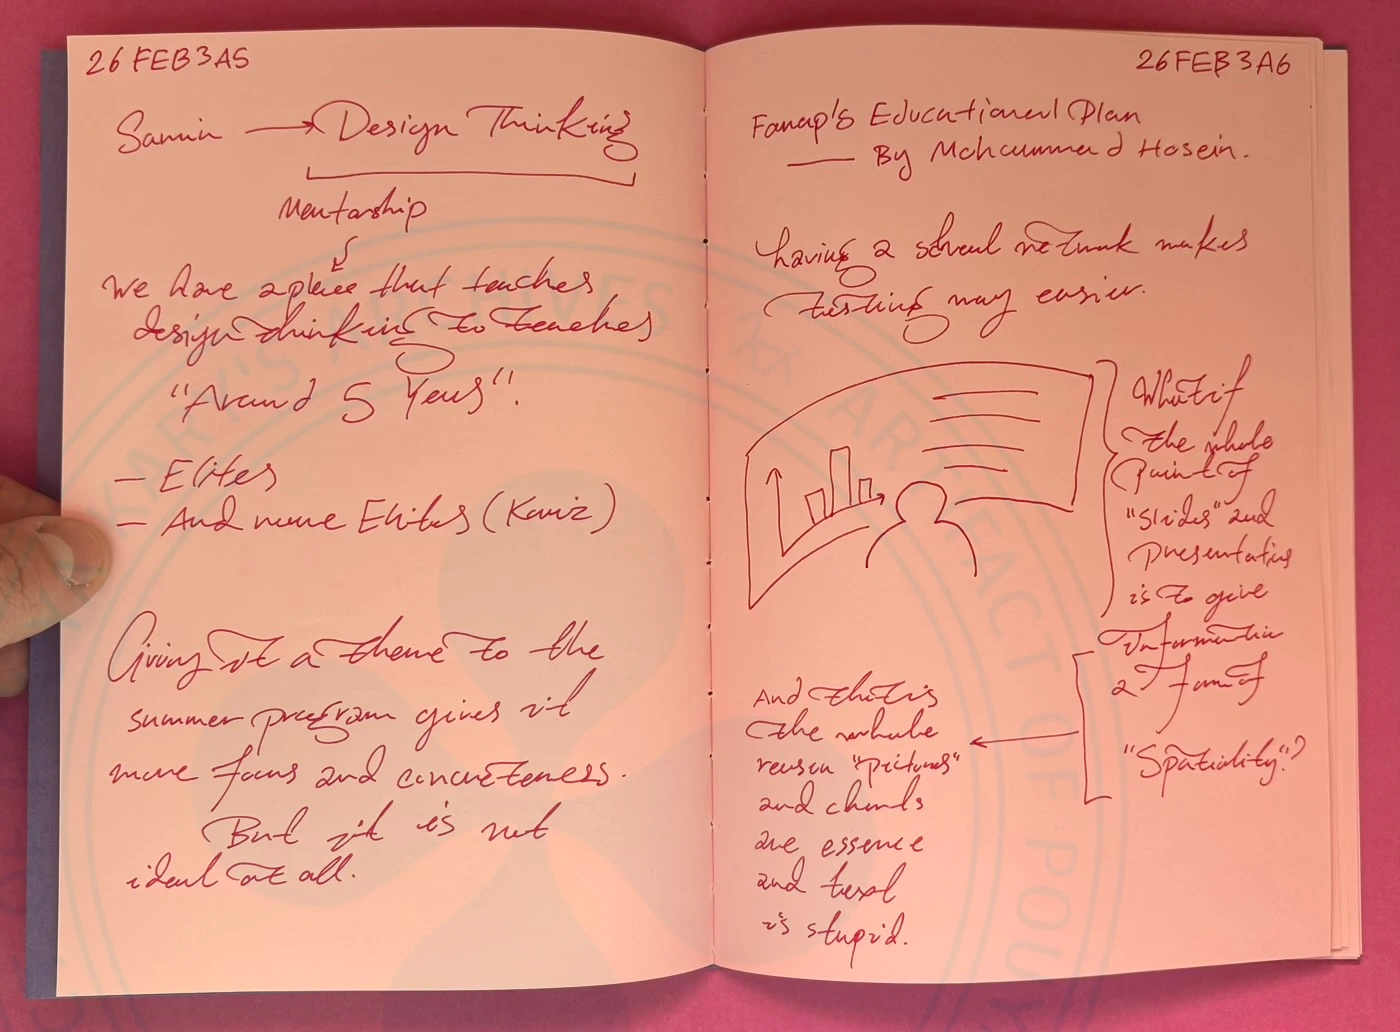 26 FEB 3A5
Samin → Design Thinking
Mentorship
We have a place that teaches
design thinking to teaches
"Around 5 Years".
- Elites
- And more Elites (Kariz)
Giving it a theme to the
summer program gives it
more focus and concreteness.
But it is not
ideal at all.
26 FEB 3A6
Fanap's Educational Plan
— By Mohammad Hosein.
having a school network makes
testing way easier.
What if
the whole
point of
"slides" and
presentation
is to give
information
a form of
"Spatiality"?
And that is
the whole
reason "pictures"
and charts
are essence
and text
is stupid.
POUYA KARY'S ARCHIVES
AN ARTEFACT OF POUY